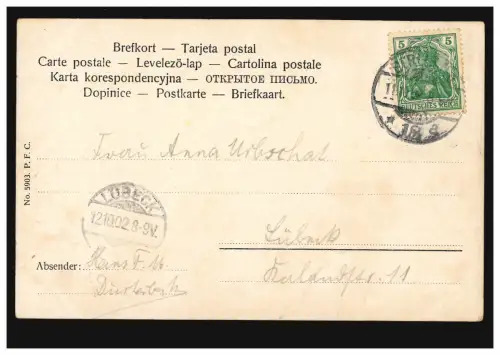 Brefkort — Tarjeta postal
Carte postale — Levelező-lap — Cartolina postale
Karta korespondencyjna — ОТКРЫТОЕ ПИСЬМО.
Dopinice — Postkarte — Briefkaart.
5 5
DEUTSCHES REICH
Frau Anna Urbschat
LÜBECK
12.10.02.8-9V.
Lübeck
Kalandstr. 11
Absender: Hans
No. 5903. P. F. C.